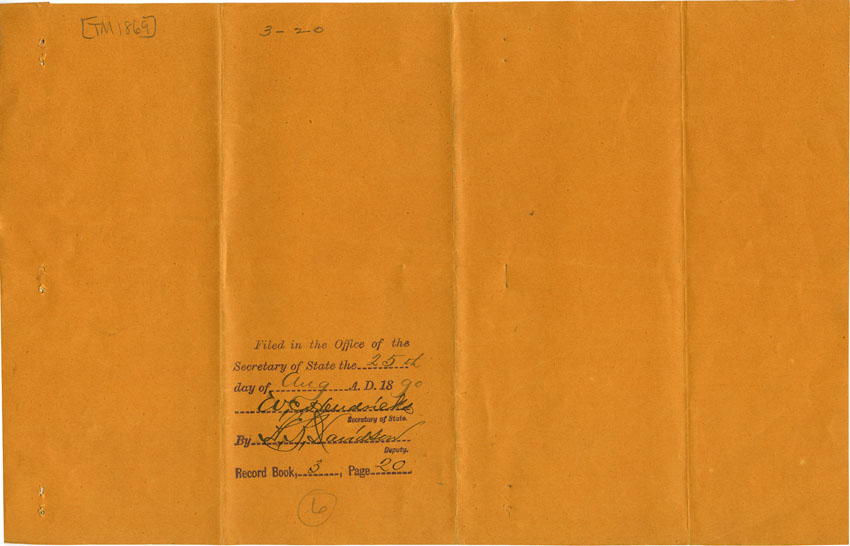 [TM 1869]
3-20
Filed in the Office of the
Secretary of State the 25th
day of Aug A. D. 1890
W C Hendricks
Secretary of State.
By Davidson
Deputy.
Record Book, 3, Page 20
6